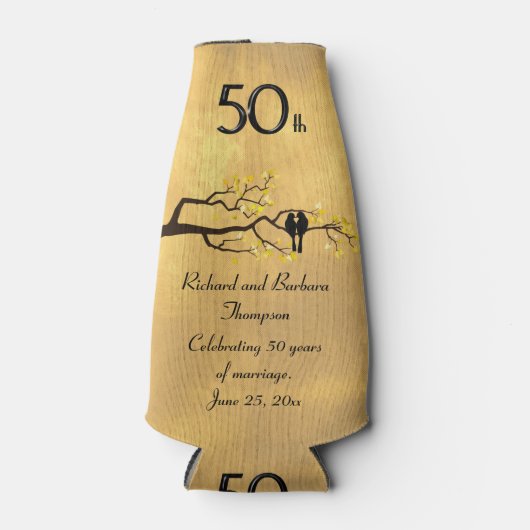 50th
Richard and Barbara
Thompson
Celebrating 50 years
of marriage.
June 25, 20xx
50